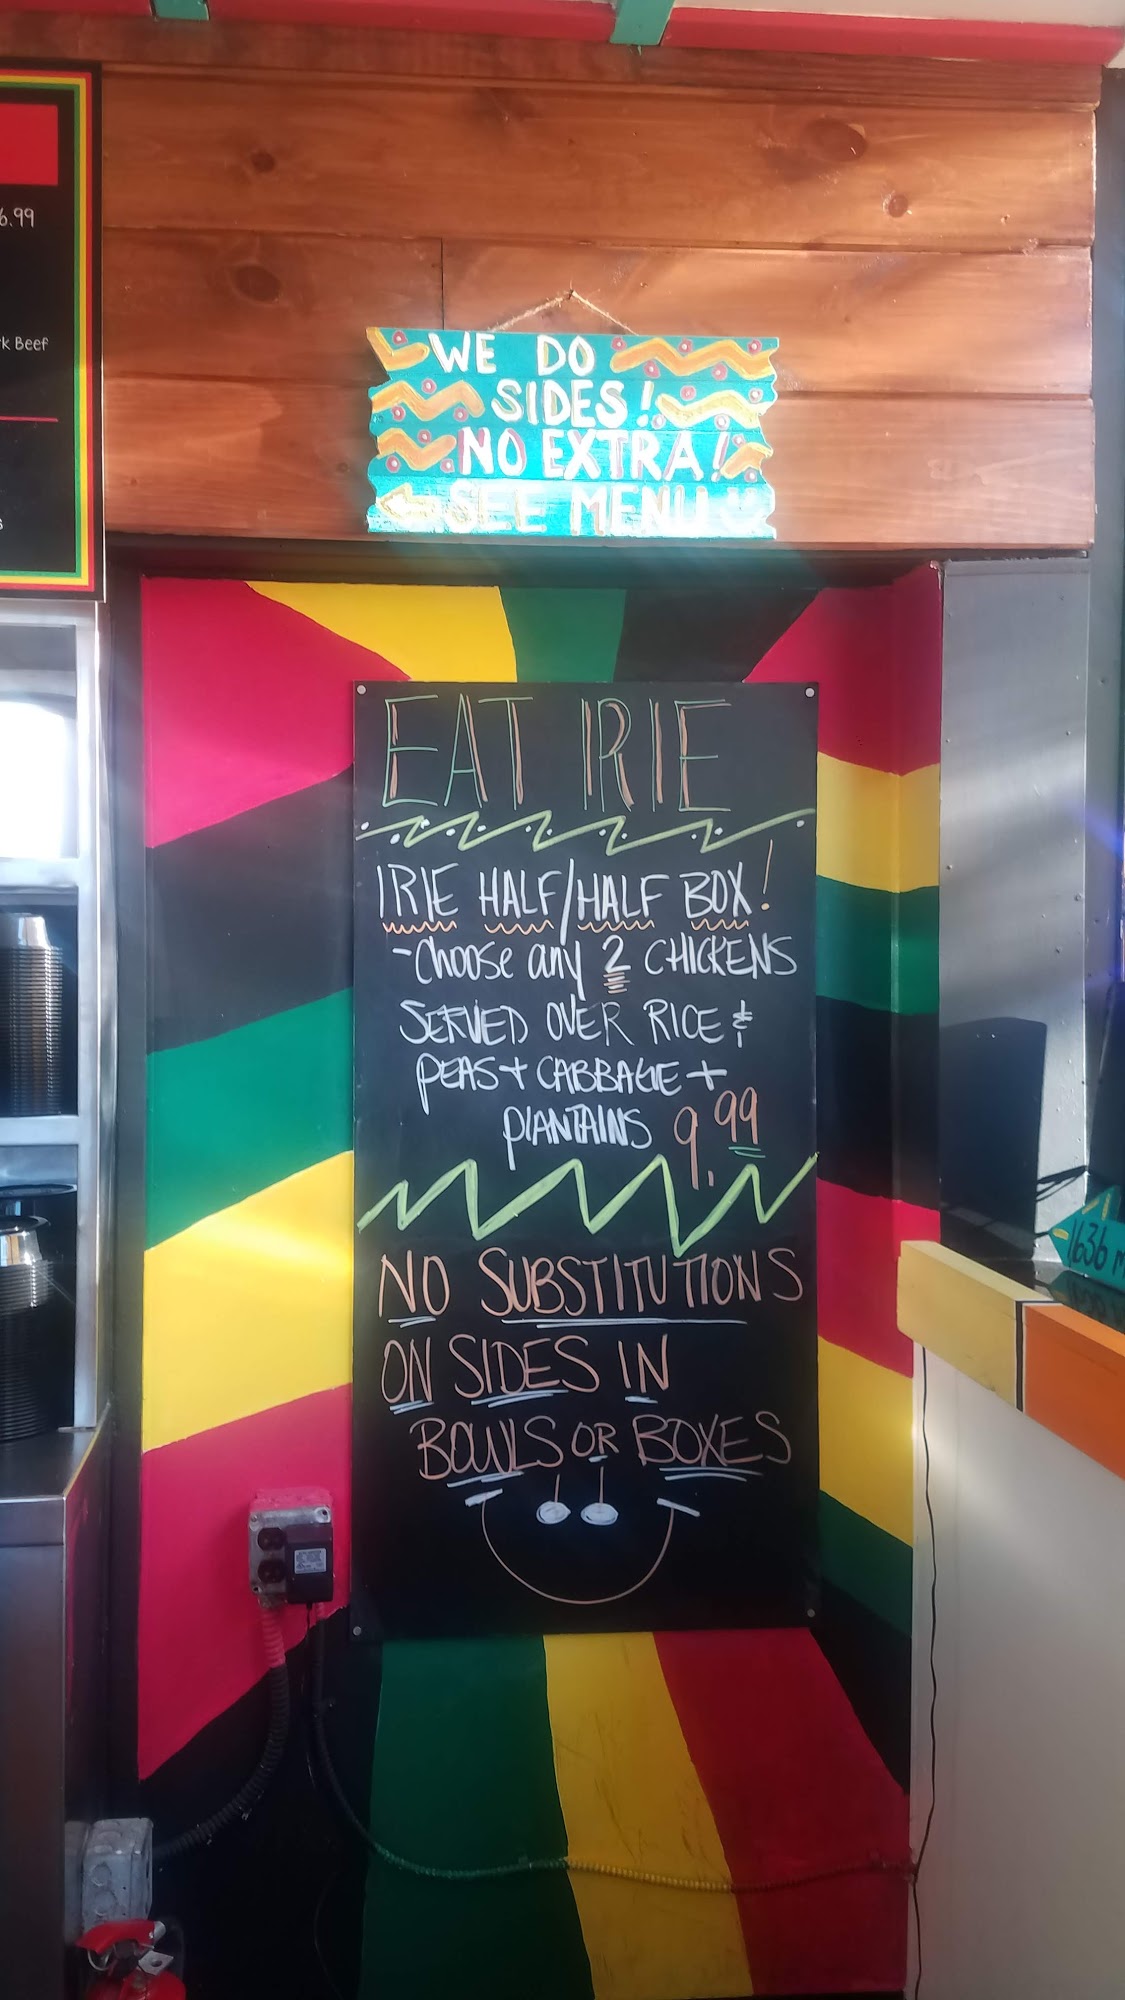 6.99
Beef
WE DO
SIDES!
NO EXTRA!
SEE MENU
EAT IRIE
IRIE HALF/HALF BOX!
-Choose any 2 CHICKENS
SERVED OVER RICE &
PEAS + CABBAGE +
PLANTAINS 9.99
NO SUBSTITUTIONS
ON SIDES IN
BOWLS OR BOXES
1636